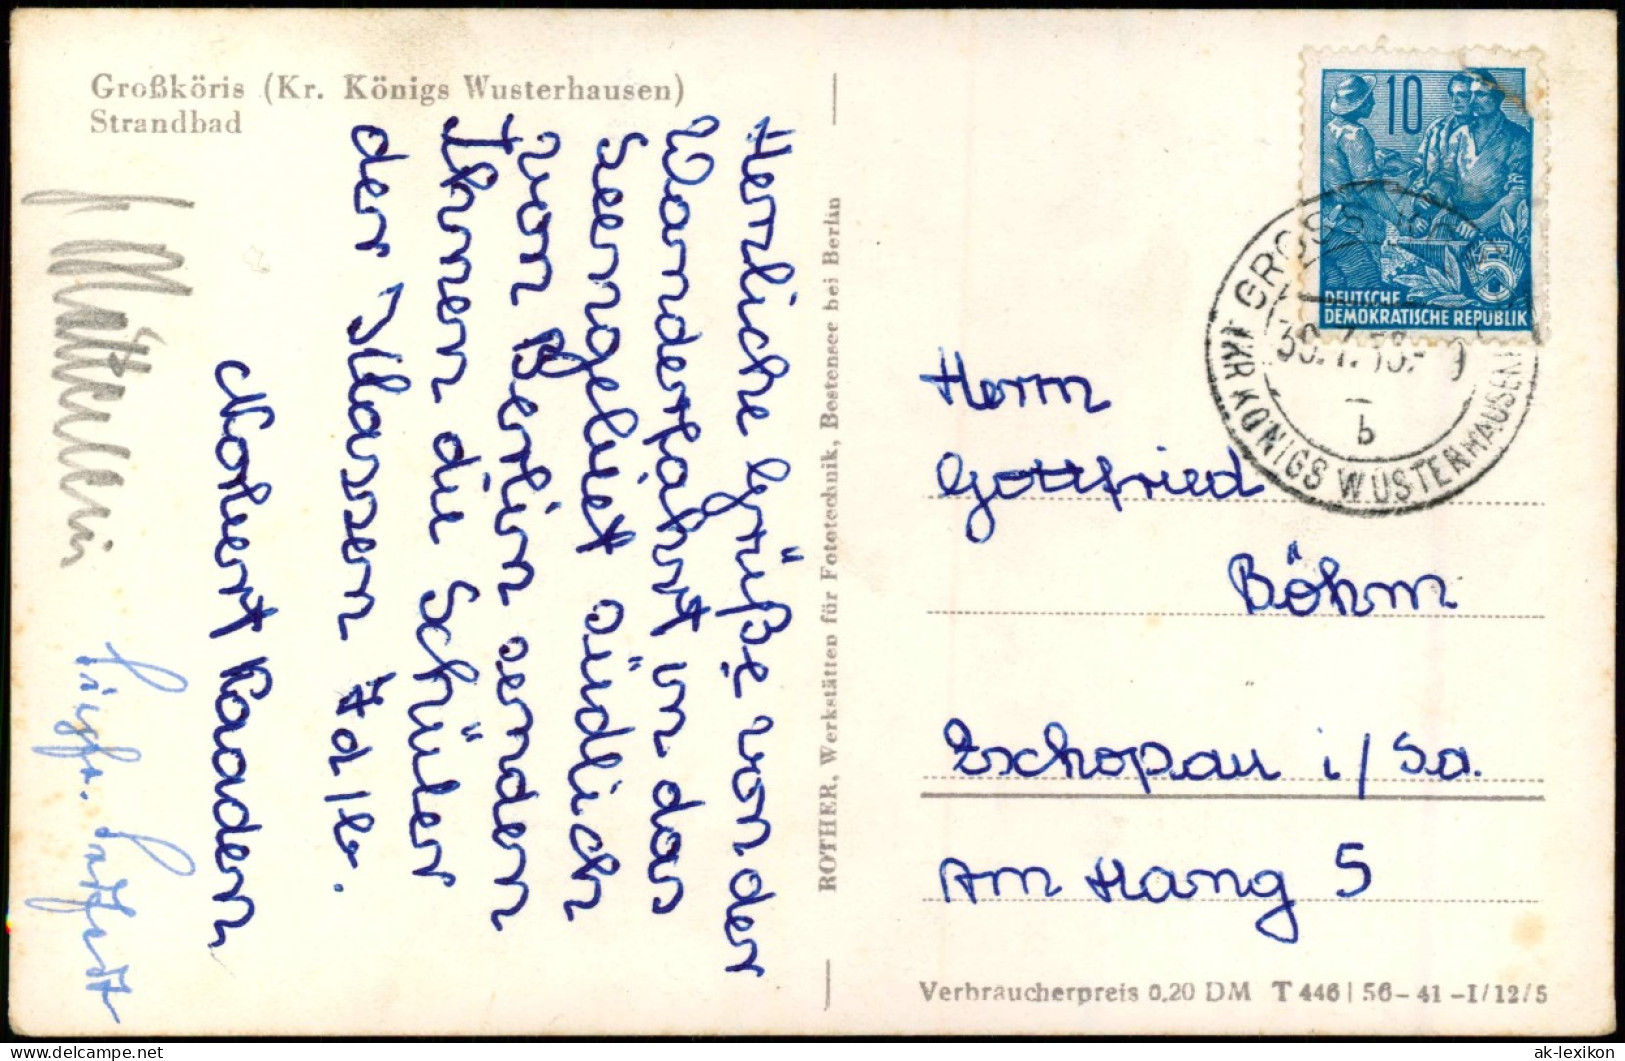 Großköris (Kr. Königs Wusterhausen)
Strandbad
Herzliche Grüße von der
Wanderfahrt in das
Seengebiet südlich
von Berlin senden
Ihnen die Schüler
der Klassen 7d/b.
Norbert Kaaden
ROTHER, Werkstätten für Fototechnik, Bestensee bei Berlin
10
5
DEUTSCHE
DEMOKRATISCHE REPUBLIK
GROSS
30.7.58.
b
(KR KÖNIGS WUSTERHAUSEN
Herrn
Gottfried
Böhm
Zschopau i/Sa.
Am Hang 5
Verbraucherpreis 0,20 DM T 446 | 56 - 41 - I/12/5
ak-lexikon